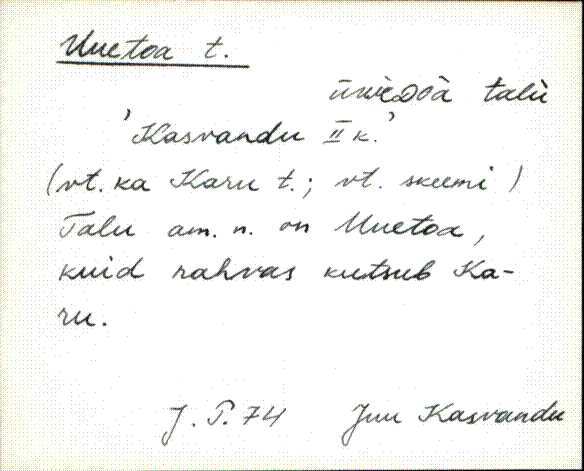 Uuetoa t.
talu
'Kasvandu II k.'
(vt. ka Karu t.; vt. skeemi)
Talu am. n. on Uuetoa,
kuid rahvas kutsub Ka-
ru.
J. T. 74 Juu Kasvandu